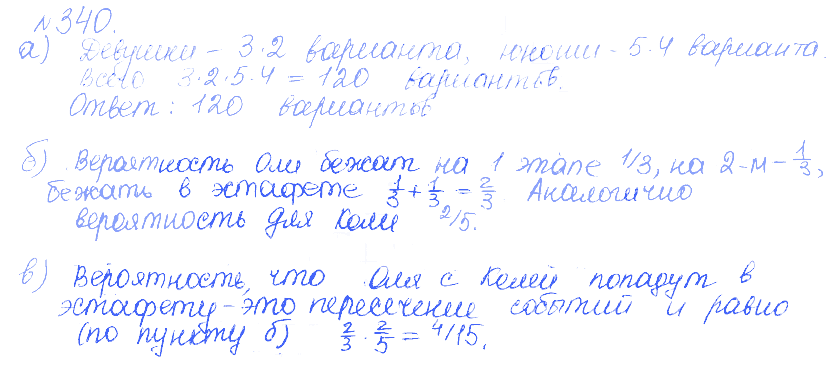 №340.
а) Девушки - 3·2 варианта, юноши - 5·4 варианта.
Всего 3·2·5·4 = 120 вариантов.
Ответ: 120 вариантов
б) Вероятность Оли бежать на 1 этапе 1/3, на 2-м - 1/3,
бежать в эстафете 1/3 + 1/3 = 2/3. Аналогично
вероятность для Коли 2/5.
в) Вероятность, что Оля с Колей попадут в
эстафету - это пересечение событий и равно
(по пункту б) 2/3 · 2/5 = 4/15.